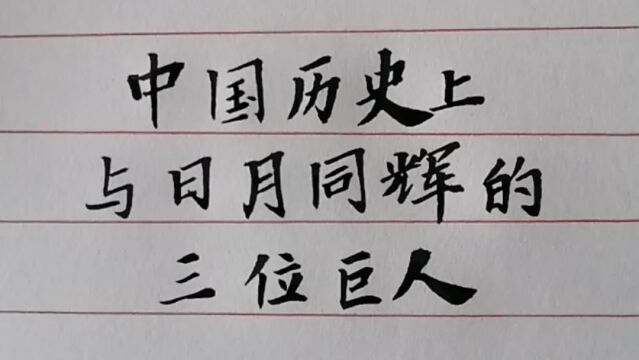 中国历史上
与日月同辉的
三位巨人